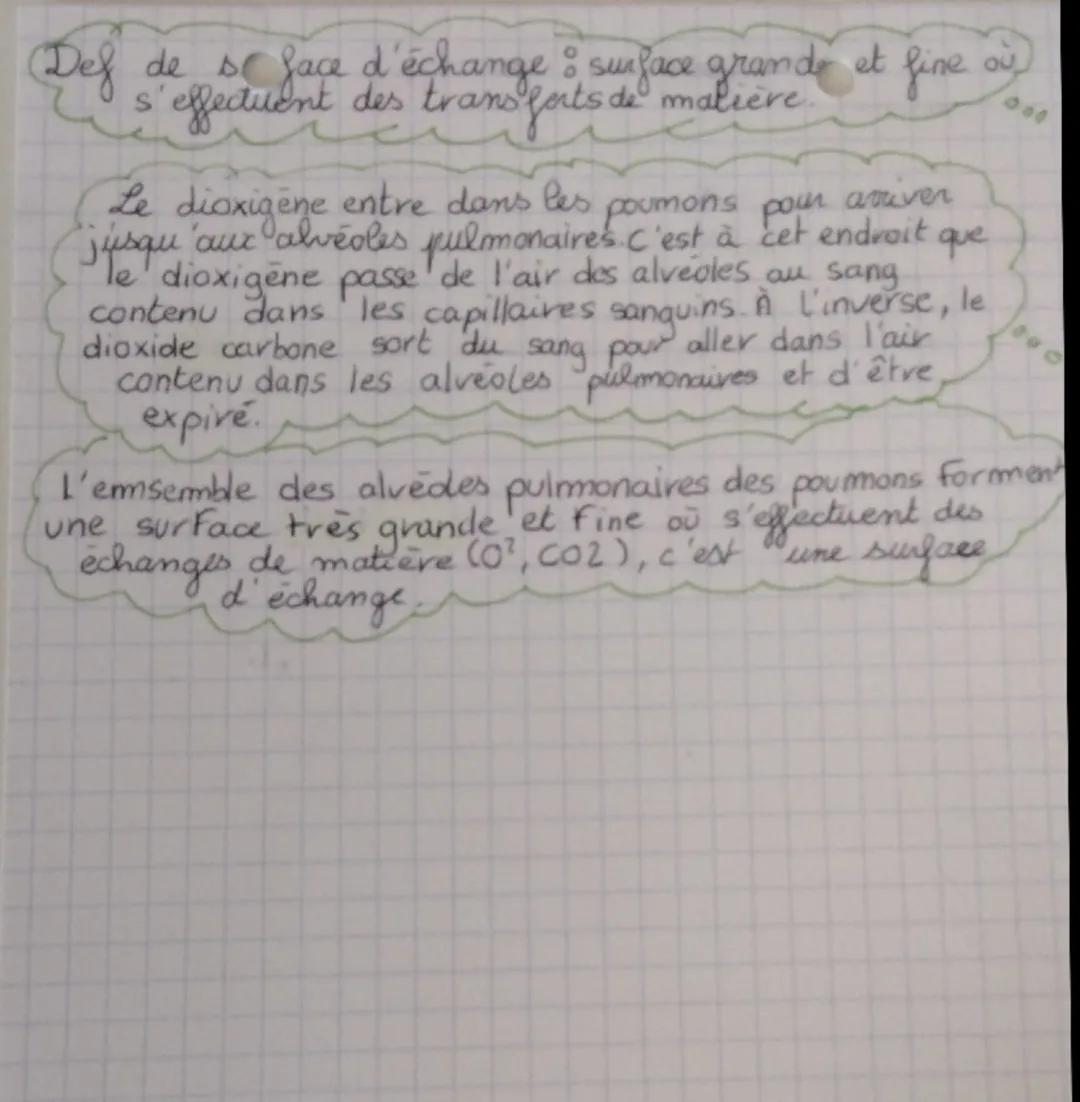 Def de surface d'échange : surface grande et fine où
s'effectuent des transferts de matière.
Le dioxigène entre dans les poumons pour arriver
jusqu'aux alvéoles pulmonaires. C'est à cet endroit que
le dioxigène passe de l'air des alvéoles au sang
contenu dans les capillaires sanguins. À l'inverse, le
dioxide carbone sort du sang pour aller dans l'air
contenu dans les alvéoles pulmonaires et d'être
expiré.
L'emnsemble des alvéoles pulmonaires des poumons forment
une surface très grande et fine où s'effectuent des
échanges de matière (O², CO2), c'est une surface
d'échange.